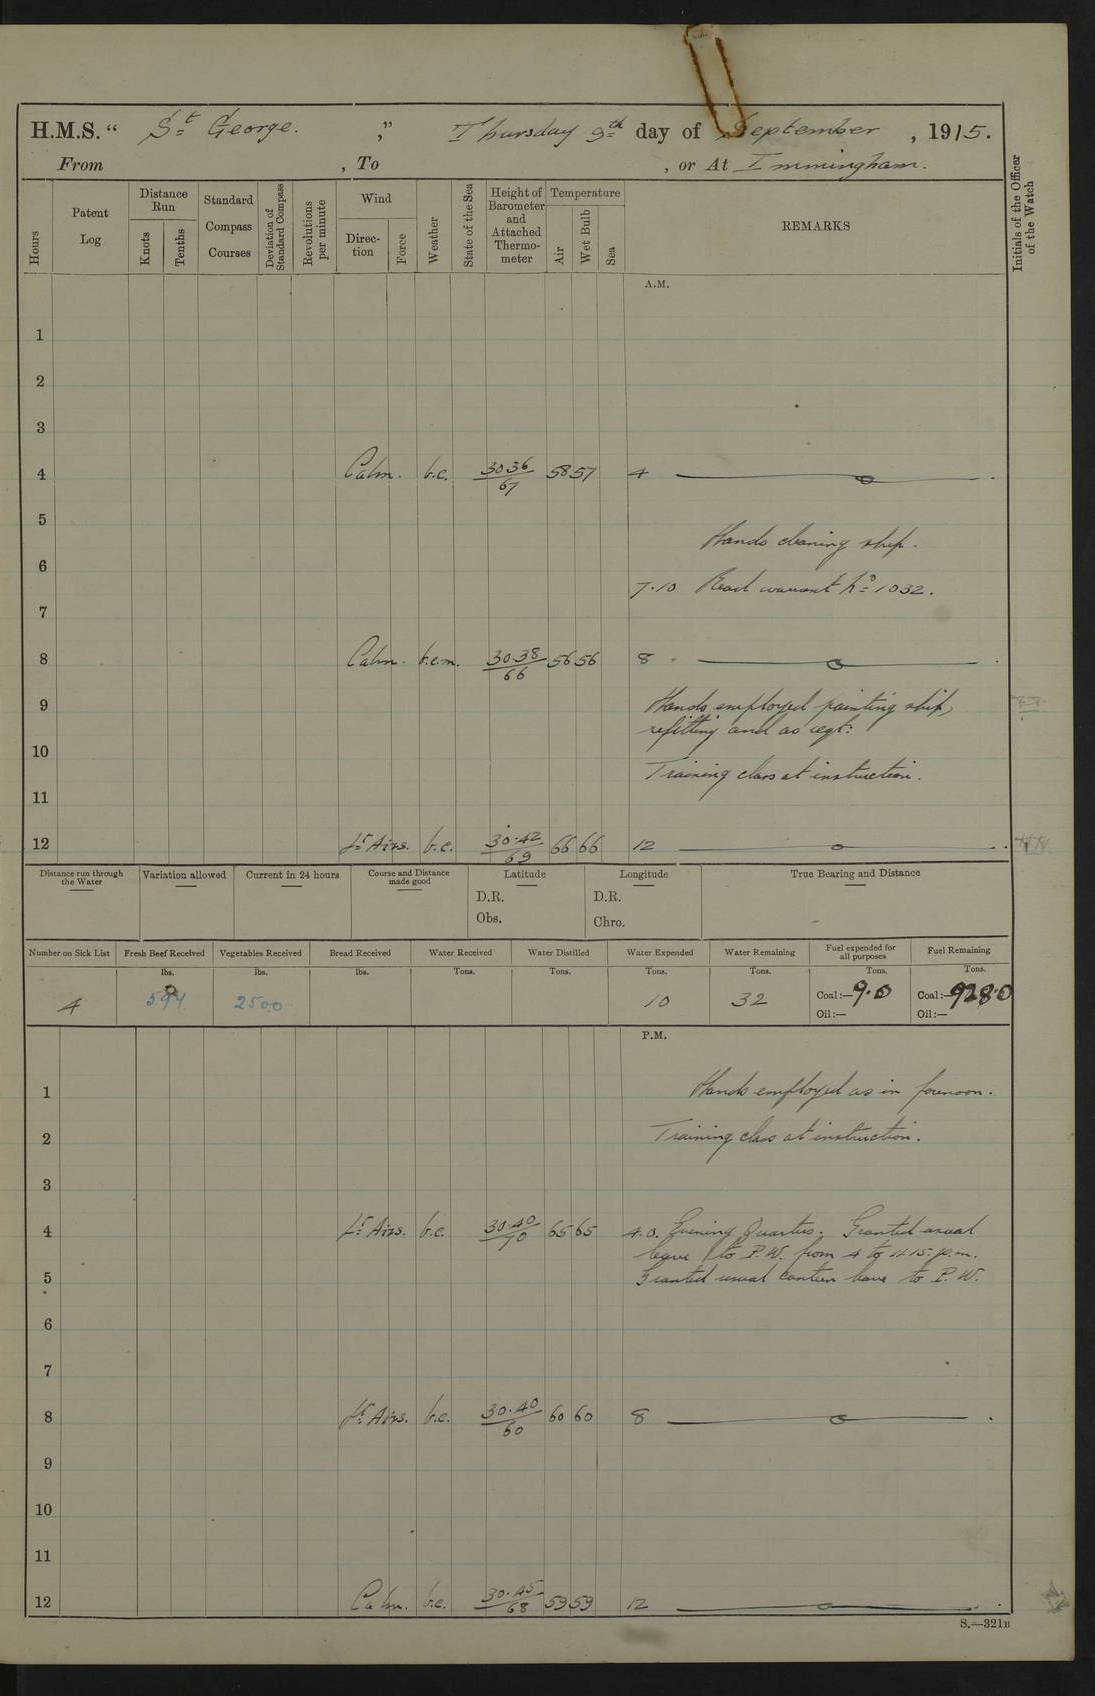 H.M.S. " St George. ," Thursday 9th day of September , 1915.
From , To , or At Immingham.
Hours
Patent Log
Distance Run
Knots
Tenths
Standard Compass Courses
Deviation of Standard Compass
Revolutions per minute
Wind
Direction
Force
Weather
State of the Sea
Height of Barometer and Attached Thermometer
Temperature
Air
Wet Bulb
Sea
REMARKS
Initials of the Officer of the Watch
A.M.
1
2
3
4 Calm. b.c. 30.36/67 58 57 4 —
5
Hands cleaning ship.
6
7.10 Read warrant No 1032.
7
8 Calm. b.c.m. 30.38/66 56 56 8 —
9 Hands employed painting ship,
refitting and as reqt:
10
Training class at instruction.
11
12 Lt Airs. b.c. 30.42/69 66 66 12 —
Distance run through the Water
Variation allowed
Current in 24 hours
Course and Distance made good
Latitude
D.R.
Obs.
Longitude
D.R.
Chro.
True Bearing and Distance
Number on Sick List
Fresh Beef Received
Vegetables Received
Bread Received
Water Received
Water Distilled
Water Expended
Water Remaining
Fuel expended for all purposes
Fuel Remaining
lbs. lbs. lbs. Tons. Tons. Tons. Tons. Tons. Tons.
4 2500 10 32 Coal:— 9.0 Coal:— 928.0
Oil:— Oil:—
P.M.
1 Hands employed as in forenoon.
2 Training class at instruction.
3
4 Lt Airs. b.c. 30.40/70 65 65 4.0. Evening Quarters. Granted usual
leave to P.W. from 4 to 11.15. p.m.
5 Granted usual canteen leave to P.W.
6
7
8 Lt Airs. b.c. 30.40/60 60 60 8 —
9
10
11
12 Calm. b.c. 30.45/68 59 59 12 —
S.—321B